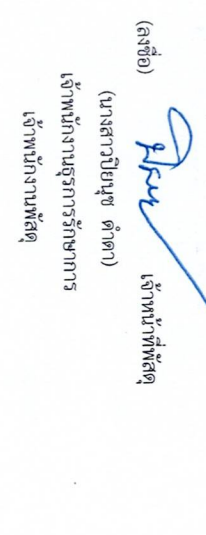 (ลงชื่อ) เจ้าหน้าที่พัสดุ
(นางสาวปิยนุช ดำดา)
เจ้าพนักงานธุรการรักษาการ
เจ้าพนักงานพัสดุ